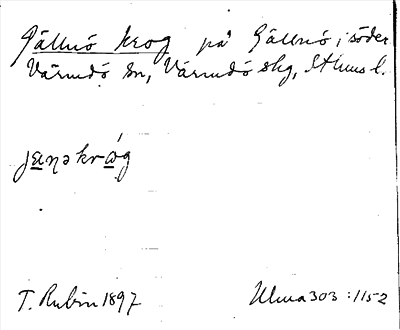 Gällnö krog på Gällnö, i söder
Värmdö sn, Värmdö skg, Sthms l.
janəkrǻg
T. Rubin 1897
Ulma 303:1152